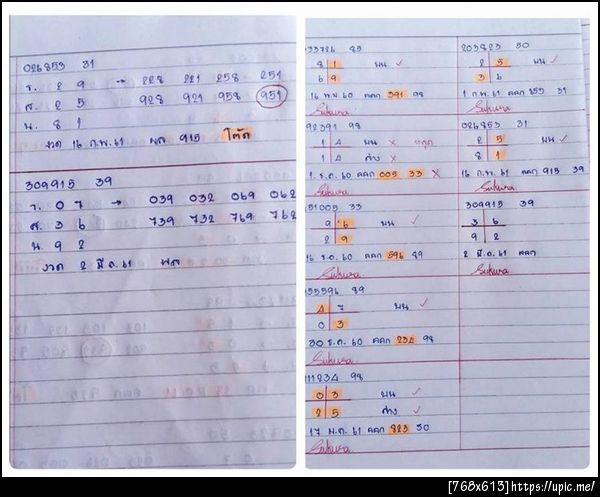 026853 31
ร. 2 9 → 228 221 258 251
ส. 2 5 928 921 958 951
น. 8 1
งวด 16 ก.พ. 61 ผล 915 โต๊ด
309915 39
ร. 0 7 → 039 032 069 062
ส. 3 6 739 732 769 762
น. 9 2
งวด 2 มี.ค. 61 ผล
33726 85
8 1 บน ✓
6 9
16 พ.ย. 60 ออก 391 98
Sukura
92391 98
1 4 บน ×
1 4 ล่าง ×
1 ธ.ค. 60 ออก 005 33 ×
Sukura
51005 33
9 6 บน ✓
2 9
16 ธ.ค. 60 ออก 596 89
Sukura
55596 89
4 7 บน ✓
0 3
30 ธ.ค. 60 ออก 234 98
Sukura
11234 98
0 3 บน ✓
2 5 ล่าง ✓
17 ม.ค. 61 ออก 823 50
Sukura
203823 50
2 5 บน ✓
3 6
1 ก.พ. 61 ออก 853 31
Sukura
026853 31
2 5 บน ✓
8 1
16 ก.พ. 61 ออก 915 39
Sukura
309915 39
3 6
9 2
2 มี.ค. 61 ออก
Sukura
[768x613]https://upic.me/